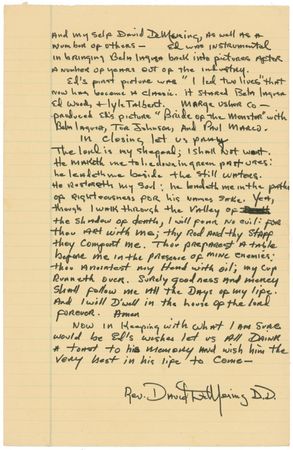 And my self David DeMering, as well as a
Number of others – Ed was instrumental
in bringing Bela Lugosi back into pictures After
a number of years out of the industry.
Ed's first picture was "I led two lives" that
now has become a classic. It stared Bela Lugosi
Ed Wood, + Lyle Talbert. Marge Usher co –
produced Ed's picture "Bride of the Monster" with
Bela Lugosi, Tor Johnson, and Paul Marco.
In closing let us pray
The lord is my shepard; I shall not want.
He maketh me to lie down in green pastures:
he leadeth me beside the still waters.
He restoreth my soul; he leadeth me in the paths
of righteousness for his names sake. Yea,
though I walk through the valley of
the shadow of death, I will fear no evil: for
thou art with me; thy Rod and thy staff
they comfort me. Thou preparest a table
before me in the presence of mine enemies;
thou anointest my head with oil; my cup
runneth over. Surely goodness and mercy
shall follow me all the days of my life;
And I will Dwell in the house of the lord
forever. Amen
Now in keeping with what I am sure
would be Ed's wishes let us all drink
a toast to his memory and wish him the
very best in his life to come –
Rev. David DeMering D.D.